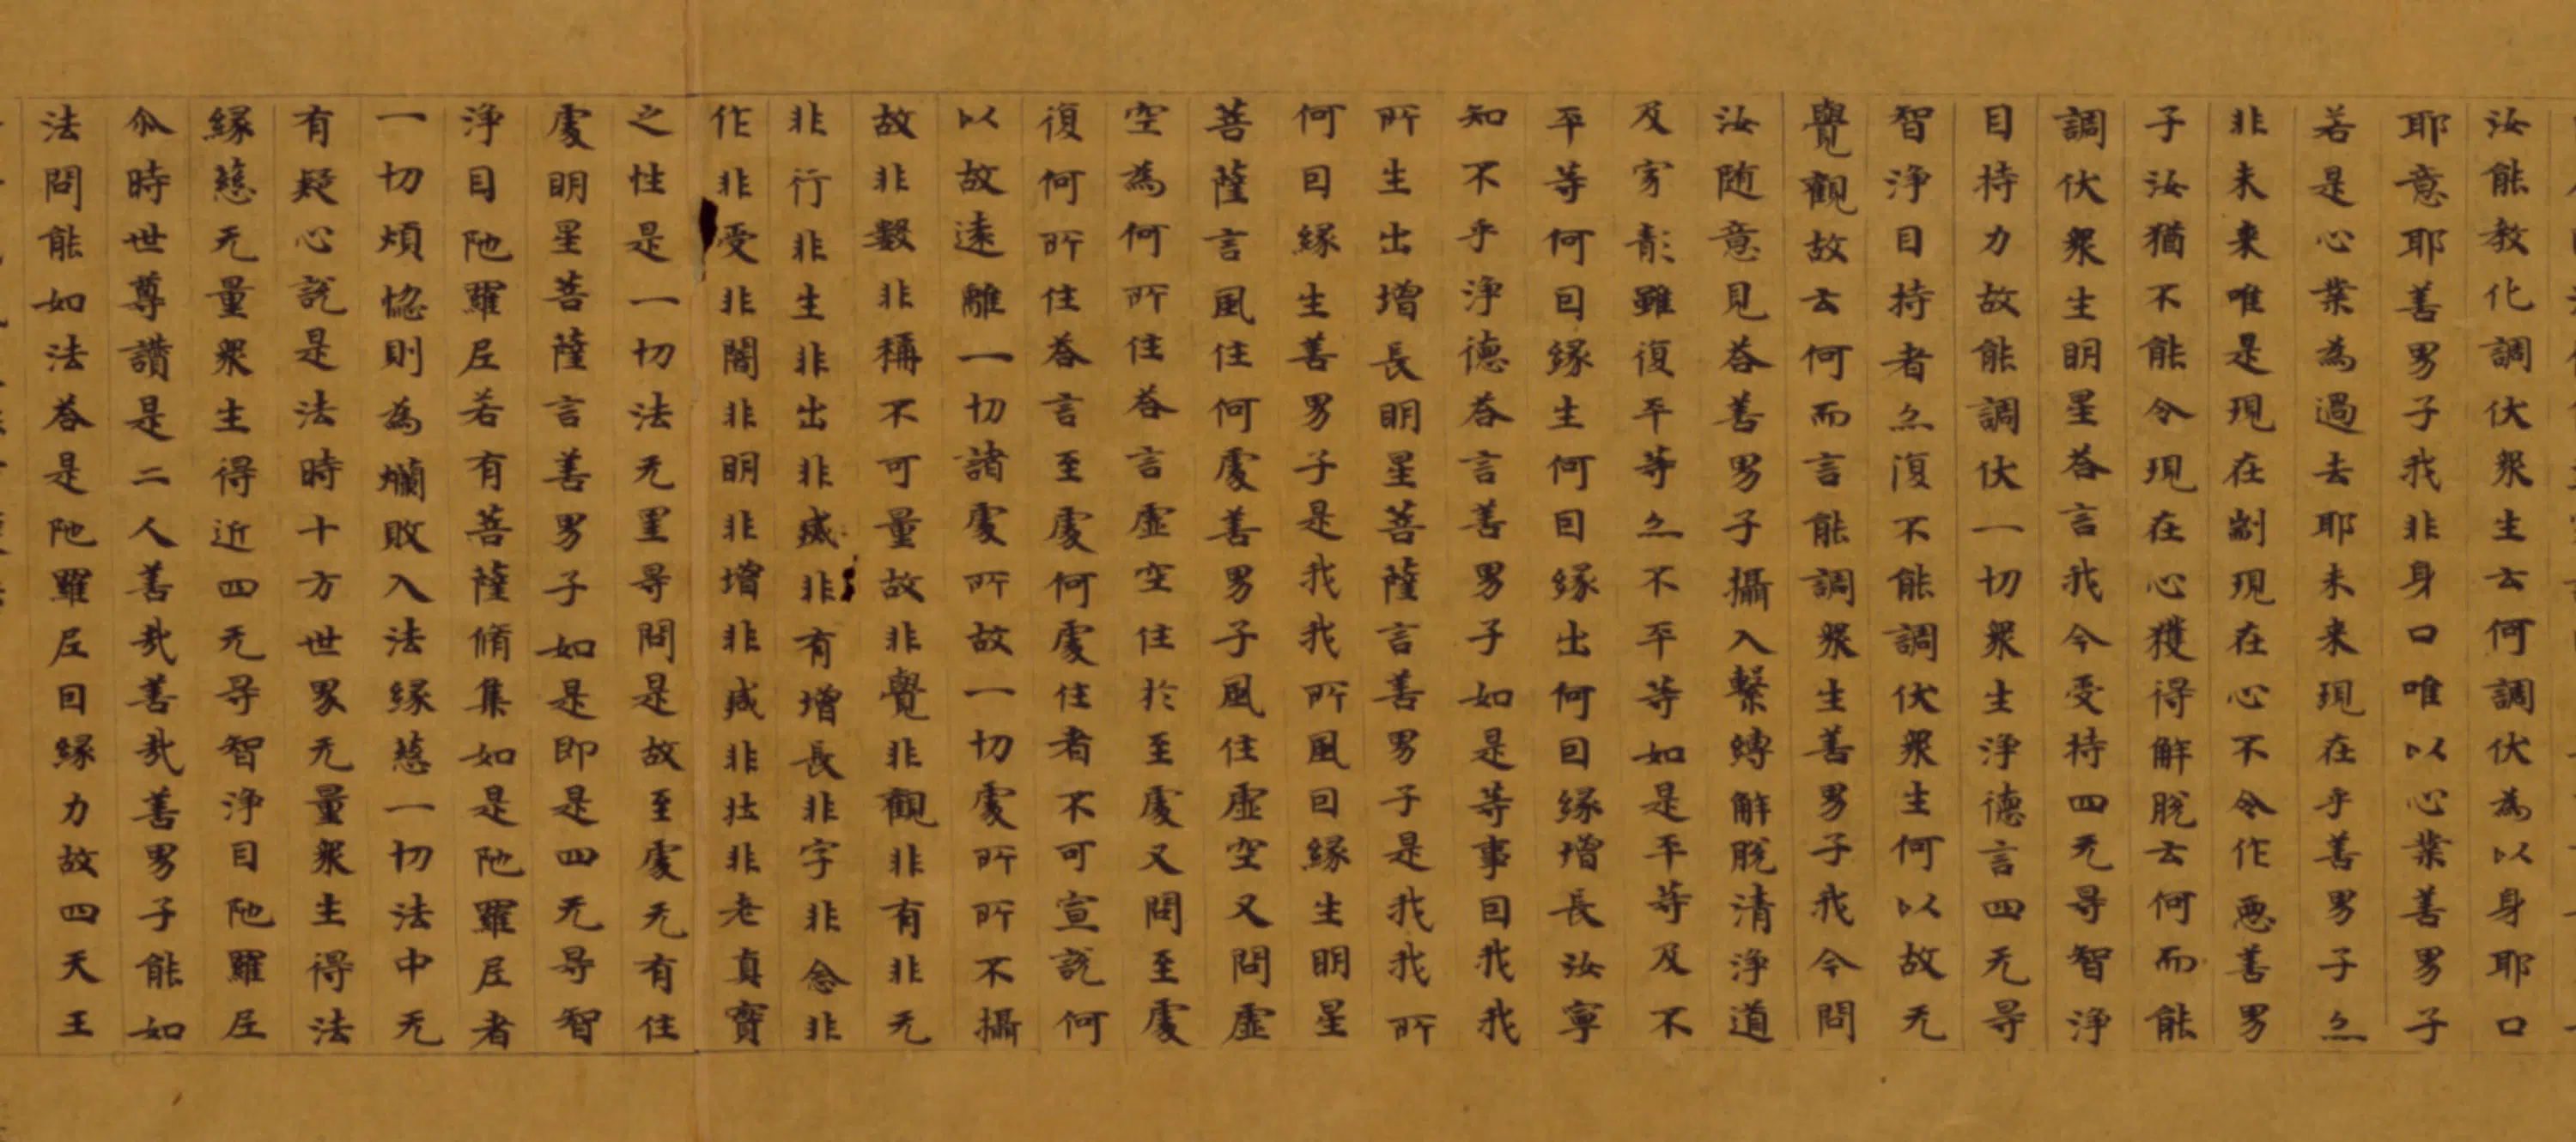 汝能教化調伏衆生云何調伏為以身耶口
耶意耶善男子我非身口唯以心業善男子
若是心業為過去耶未来現在乎善男子亦
非未来唯是現在制現在心不令作惡善男
子汝猶不能令現在心獲得解脫云何而能
調伏衆生明星荅言我今受持四无㝵智淨
目持力故能調伏一切衆生淨德言四无㝵
智淨目持者亦復不能調伏衆生何以故无
覺觀故云何而言能調衆生善男子我今問
汝随意見荅善男子攝入繫縛解脫清淨道
及家髟雖復平等亦不平等如是平等及不
平等何因緣生何因緣出何因緣增長汝寧
知不乎淨德荅言善男子如是等事因我我
所生出增長明星菩薩言善男子是我我所
何因緣生善男子是我我所風因緣生明星
菩薩言風住何處善男子風住虛空又問虛
空為何所住荅言虛空住於至處又問至處
復何所住荅言至處何處住者不可宣說何
以故遠離一切諸處所故一切處所所不攝
故非數非稱不可量故非覺非觀非有非无
非行非生非出非滅非有增長非字非念非
作非受非闇非明非增非減非壯非老真寶
之性是一切法无里㝵問是故至處无有住
處明星菩薩言善男子如是即是四无㝵智
淨目陁羅尼若有菩薩脩集如是陁羅尼者
一切煩惱則為爛敗入法緣慈一切法中无
有疑心說是法時十方世界无量衆生得法
緣慈无量衆生得近四无㝵智淨目陁羅尼
尒時世尊讚是二人善㢤善㢤善男子能如
法問能如法荅是陁羅尼因緣力故四天王